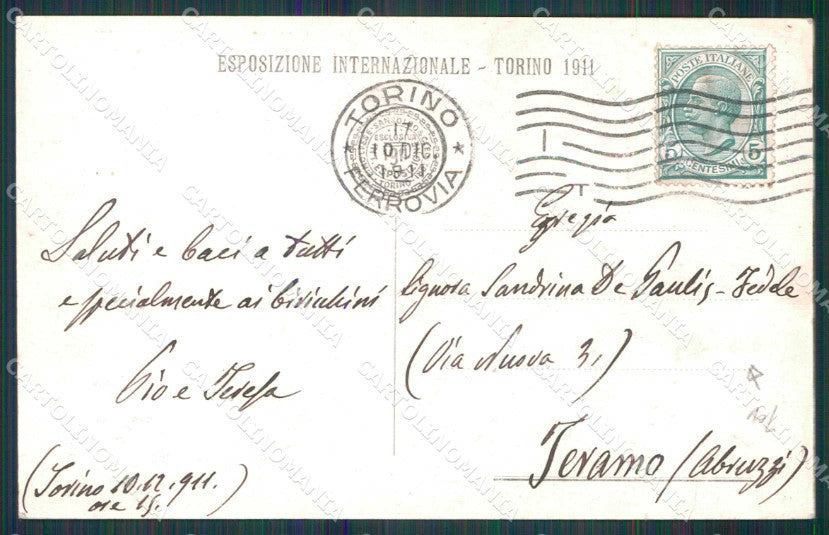 ESPOSIZIONE INTERNAZIONALE - TORINO 1911
POSTE ITALIANE
5 CENTESIMI 5
TORINO
17
10 DIC
FERROVIA
Saluti e baci a tutti
e specialmente ai birichini
Pio e Teresa
(Torino 10.12.911.
ore 15.)
Egregia
Signora Sandrina De Paulis-Fedele
(Via Nuova 3,)
Teramo (Abruzzi)
CARTOLINOMANIA